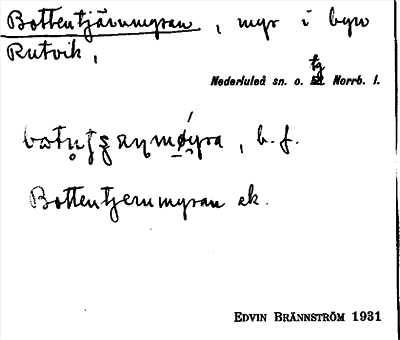 Bottentjärnmyran, myr i byn
Rutvik,
tg
Nederluleå sn. o. Norrb. l.
, b. f.
Bottentjernmyran ek.
EDVIN BRÄNNSTRÖM 1931